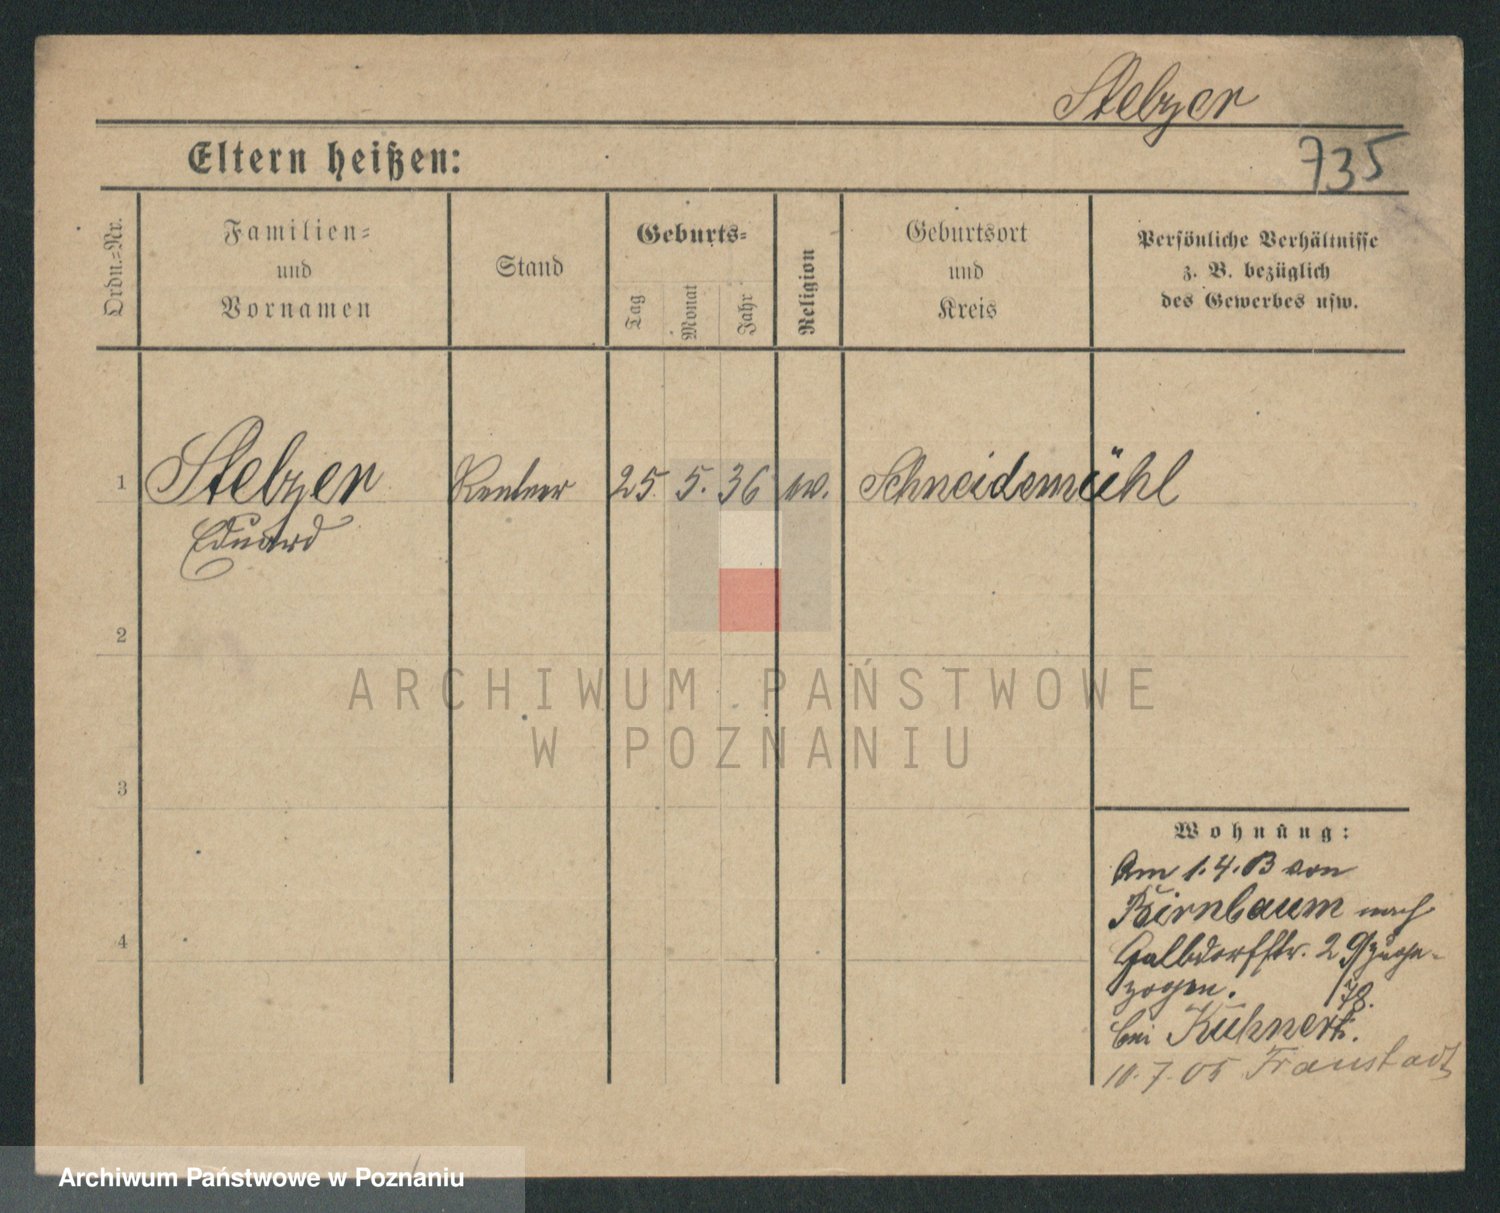 Stelzer
Eltern heißen:
735
Ordn.-Nr.
Familien-
und
Vornamen
Stand
Geburts-
Tag
Monat
Jahr
Religion
Geburtsort
und
Kreis
Persönliche Verhältnisse
z. B. bezüglich
des Gewerbes usw.
1
Stelzer
Eduard
Rentner
25. 5. 36
ev.
Schneidemühl
2
3
4
Wohnung:
Am 1.4. von
Birnbaum nach
2 zuge-
zogen.
bei Kuhnert.
10.7.05 Fraustadt
ARCHIWUM PAŃSTWOWE
W POZNANIU
Archiwum Państwowe w Poznaniu